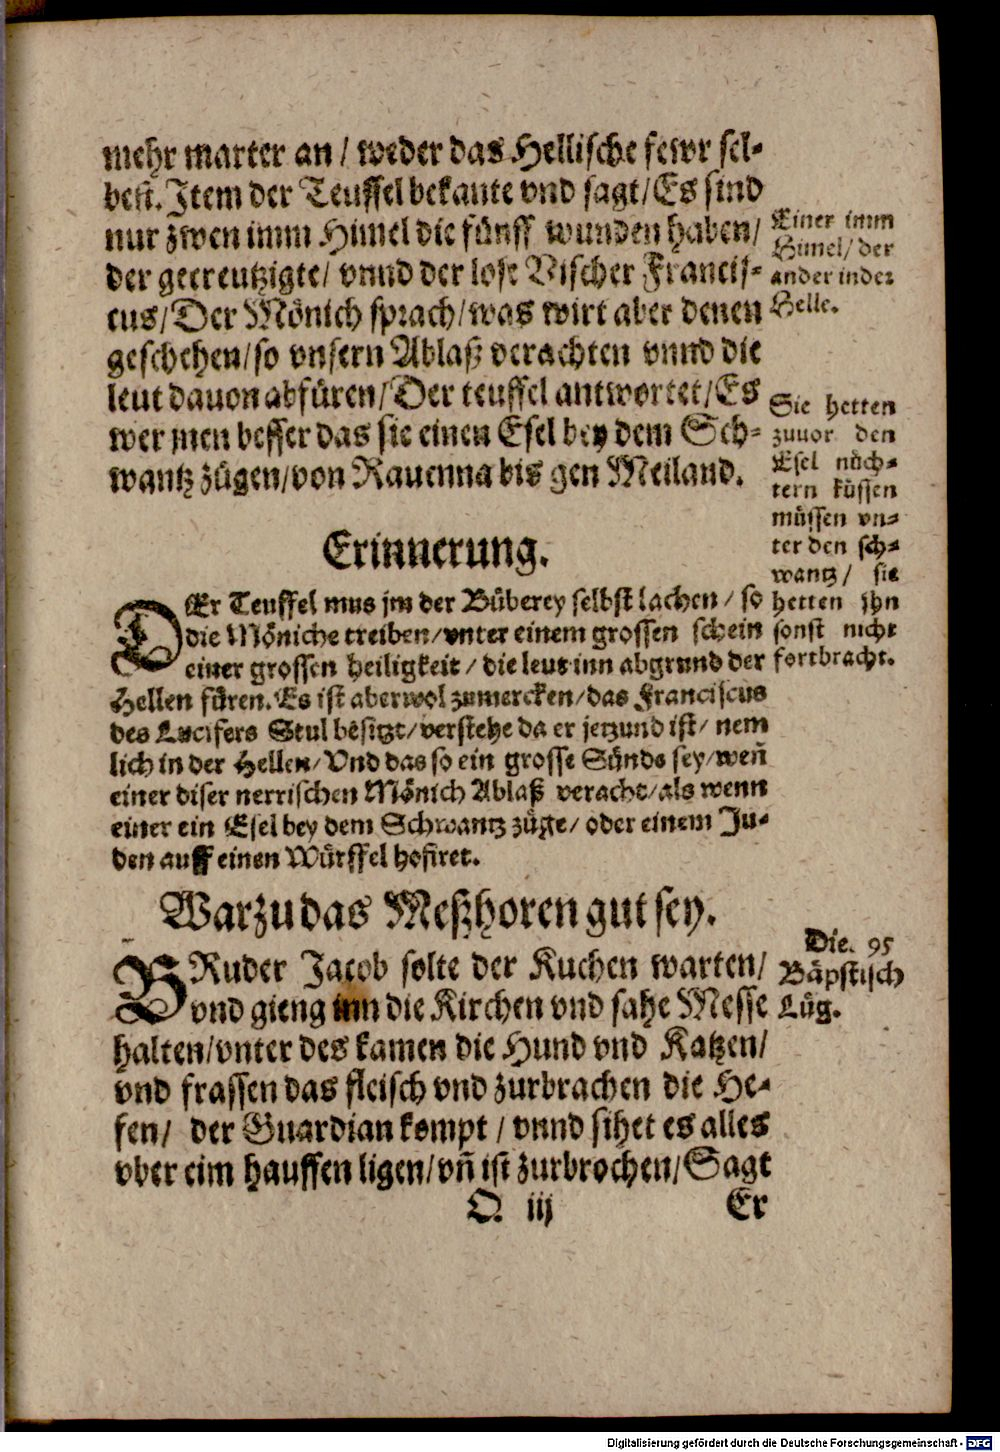 mehr marter an / weder das Hellische fewr sel-
best. Item der Teuffel bekante vnd sagt/ Es sind
nur zwen imm Himel die fünff wunden haben/
der gecreutzigte/ vnnd der lose Vischer Francis-
cus/ Der Mönich sprach/ was wirt aber denen
geschehen/ so vnsern Ablaß verachten vnnd die
leut dauon abfüren/ Der teuffel antwortet/ Es
wer jnen besser das sie einen Esel bey dem Sch-
wantz zügen/ von Rauenna bis gen Meiland.
Einer imm
Himel/ der
ander in der
Helle.
Sie hetten
zuuor den
Esel nüch-
tern küssen
müssen vn-
ter den sch-
wantz / sie
hetten jhn
sonst nicht
fortbracht.
Erinnerung.
DEr Teuffel mus jm der Büberey selbst lachen / so
die Mönische treiben/ vnter einem grossen schein
einer grossen heiligkeit / die leut inn abgrund der
Hellen füren. Es ist aber wol zumercken/ das Franciscus
des Lucifers Stul besitzt/ verstehe da er jetzund ist/ nem
lich in der Hellen/ Vnd das so ein grosse Sünde sey/ weñ
einer diser nerrischen Mönich Ablaß veracht/ als wenn
einer ein Esel bey dem Schwantz züge/ oder einem Ju-
den auff einen Würffel hofiret.
Warzu das Meßhoren gut sey.
BRuder Jacob solte der Kuchen warten/
vnd gieng inn die Kirchen vnd sahe Messe
halten/ vnter des kamen die Hund vnd Katzen/
vnd frassen das fleisch vnd zurbrachen die He-
fen/ der Guardian kompt / vnnd sihet es alles
vber eim hauffen ligen/ vñ ist zurbrochen/ Sagt
Die. 95
Bäpstisch
Lüg.
O iij
Er
Digitalisierung gefördert durch die Deutsche Forschungsgemeinschaft - DFG